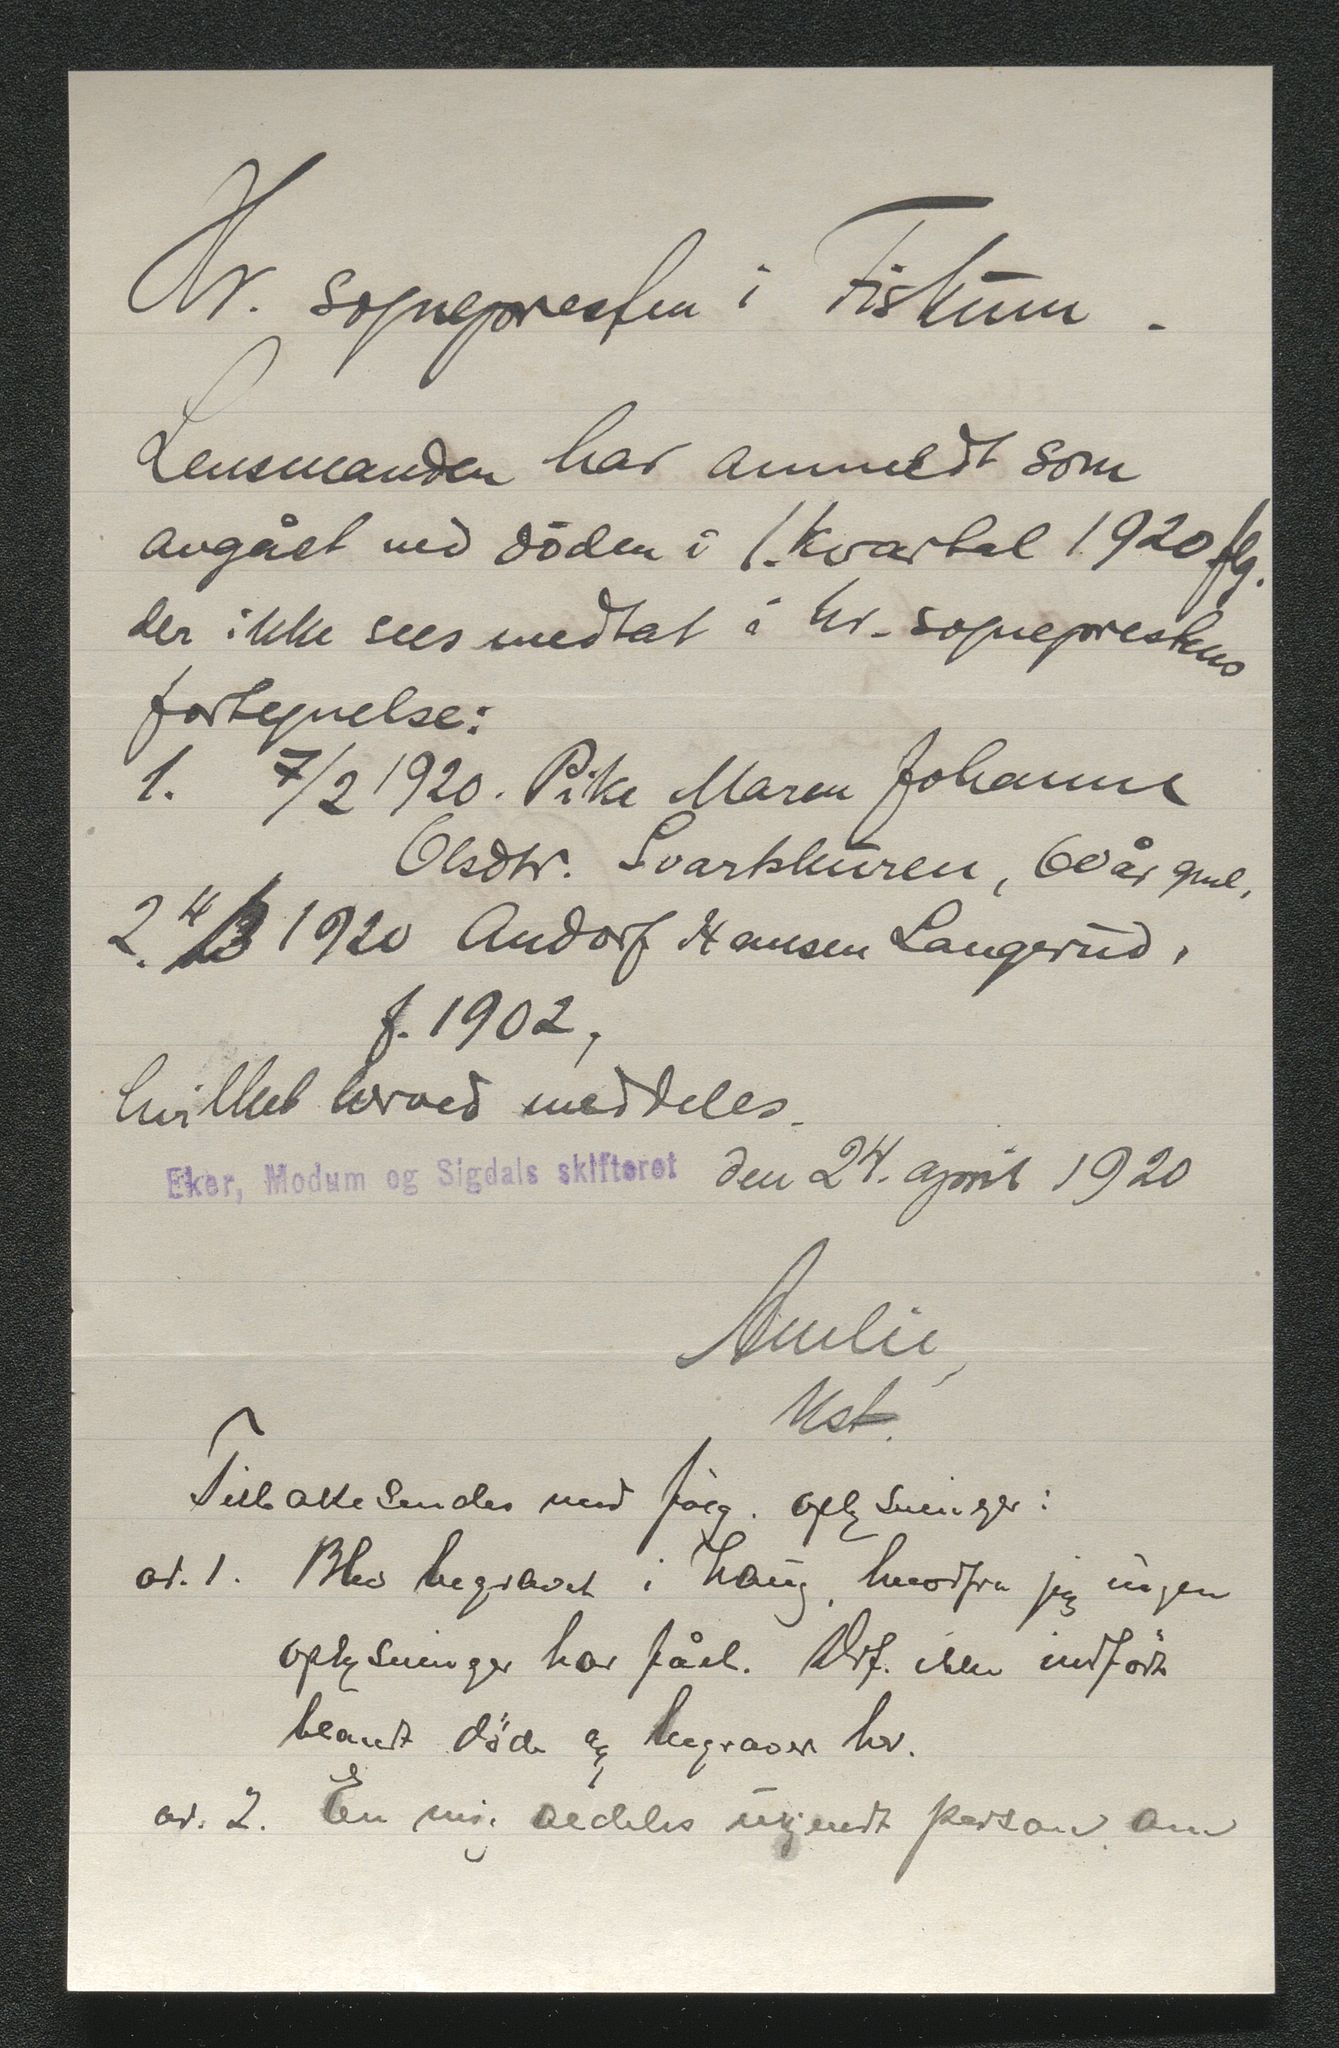 Hr. sognepresten i Fiskum.
Lensmanden har anmeldt som
avgået ved döden i 1. kvartal 1920 flg.
der ikke sees medtat i hr. sogneprestens
fortegnelse:
1. 7/2 1920. Pike Maren Johanne
Olsdtr. Svartskuren, 60 år gml.
2. 4/3 1920 Andorf Hansen Langerud,
f. 1902,
hvilket herved meddeles.
Eker, Modum og Sigdals skifteret den 24. april 1920
Kst.
Tilbakesendes med følg. oplysninger:
ad. 1. Blev begravet i Haug, hvorfra jeg ingen
oplysninger har fået. Drf. ikke indført
blandt døde og begravet her.
ad. 2. En mig aldeles ukjendt person om